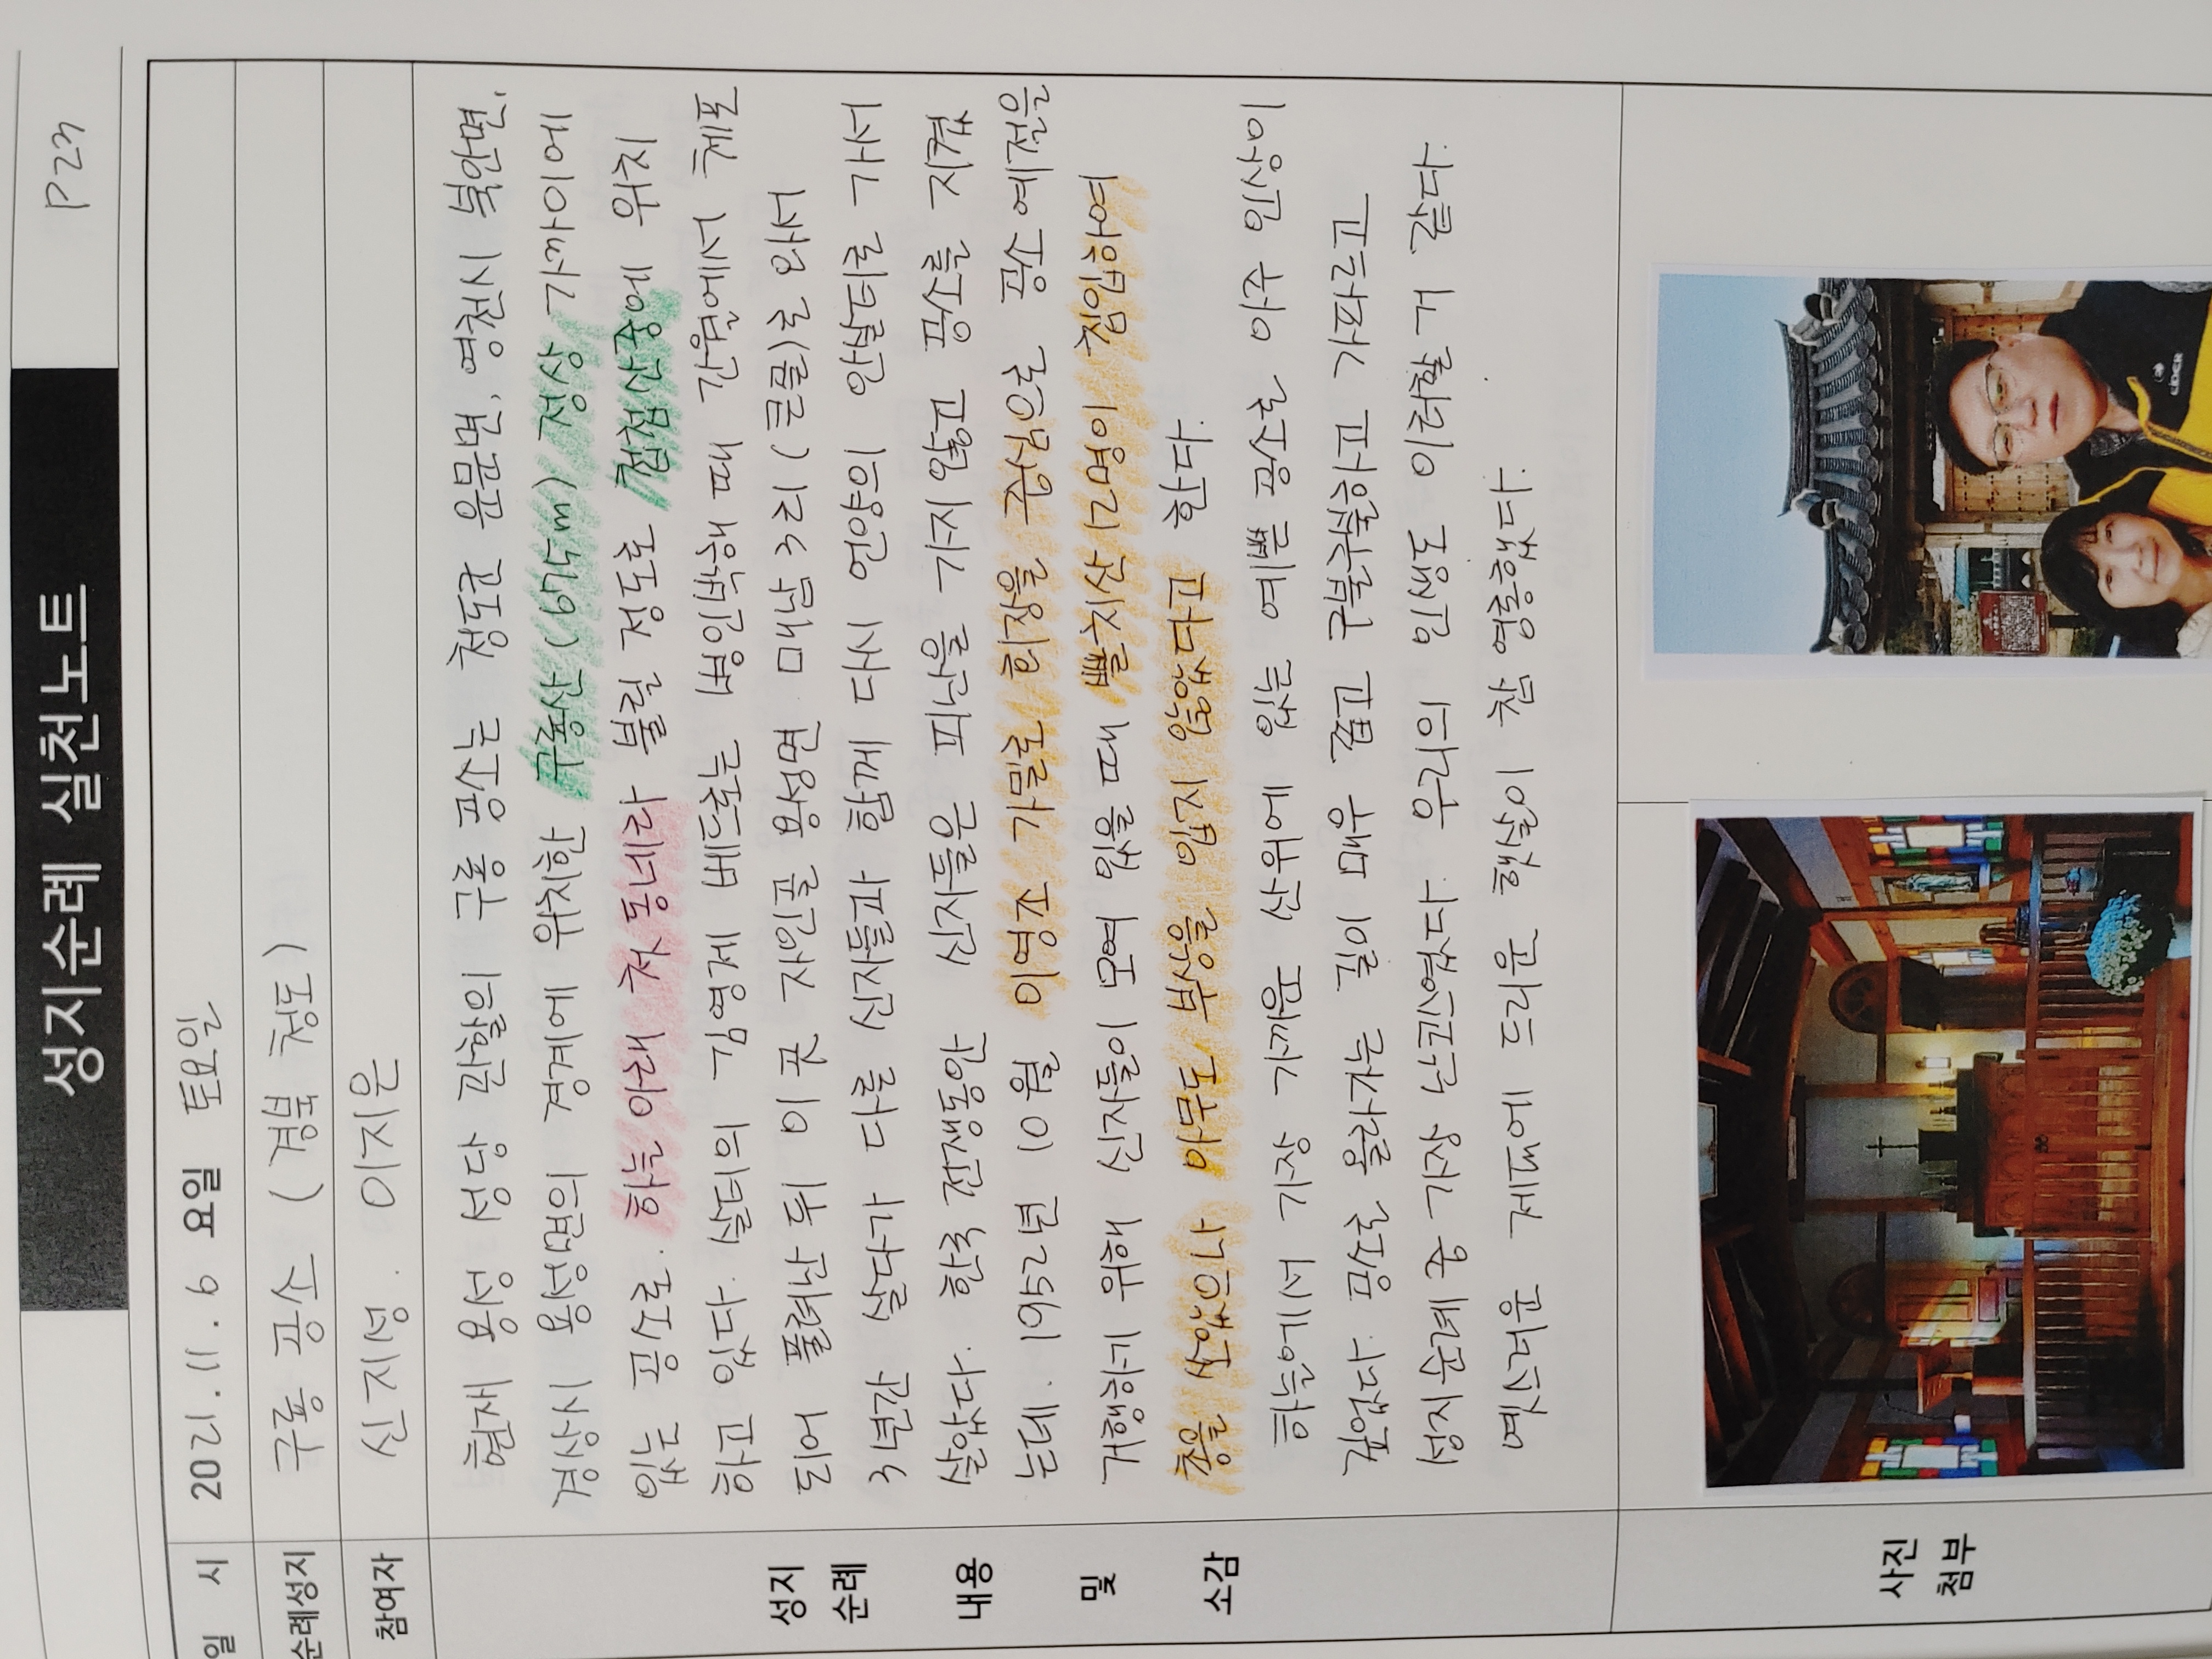 성지순례 실천노트
P23
일 시
2021.11.6 요일 토요일
순례성지
구룡 공소 (경북 청도)
참여자
신지성. 이지은
성지
순례
내용
및
소감
현재 용성 성당 관할의 구룡 공소는 청도군 운문면, 영천시 북안면,
경상시 용성면의 경계에 위치한 구룡산(675m) 정상 가까이에
있는 공소로. 하늘 아래 첫 동네라 불릴 정도로 첩첩산중에 위치
하고 있다. 살티의 김영제 베드로는 병인박해 때 간월에서 체포
되어 풀려난 뒤 이 곳 자인골 용성면 매남3리(큰골)로 와서
3년간 살다가 다른 신자들과 함께 다시 언양의 안살티로 가서
살았다. 한국전쟁동안 신자들은 피난을 가지 않고 공소를 지켰
는데. 1952년 10월 이영조 가밀로 회장을 중심으로 공소예절을
거행하기 위해 신자들이 모여 있을 때 빨치산 12명이 침입하여
총을 쏘았으나 아무도 부상을 입지 않았다고 한다.
하늘에서 가장 가까운 산위에 있는 예쁜 공소로 아주 인상이
깊었다. 공소로 올라가는 길이 매우 좁고 구불구불하고 가파르고
성지순례 중 가장 난코스였다. 우리의 인생도 이러할 거 같다.
옛스러운 제대에 드리운 햇살이 참 영롱했다.
사진
첨부
CIDER